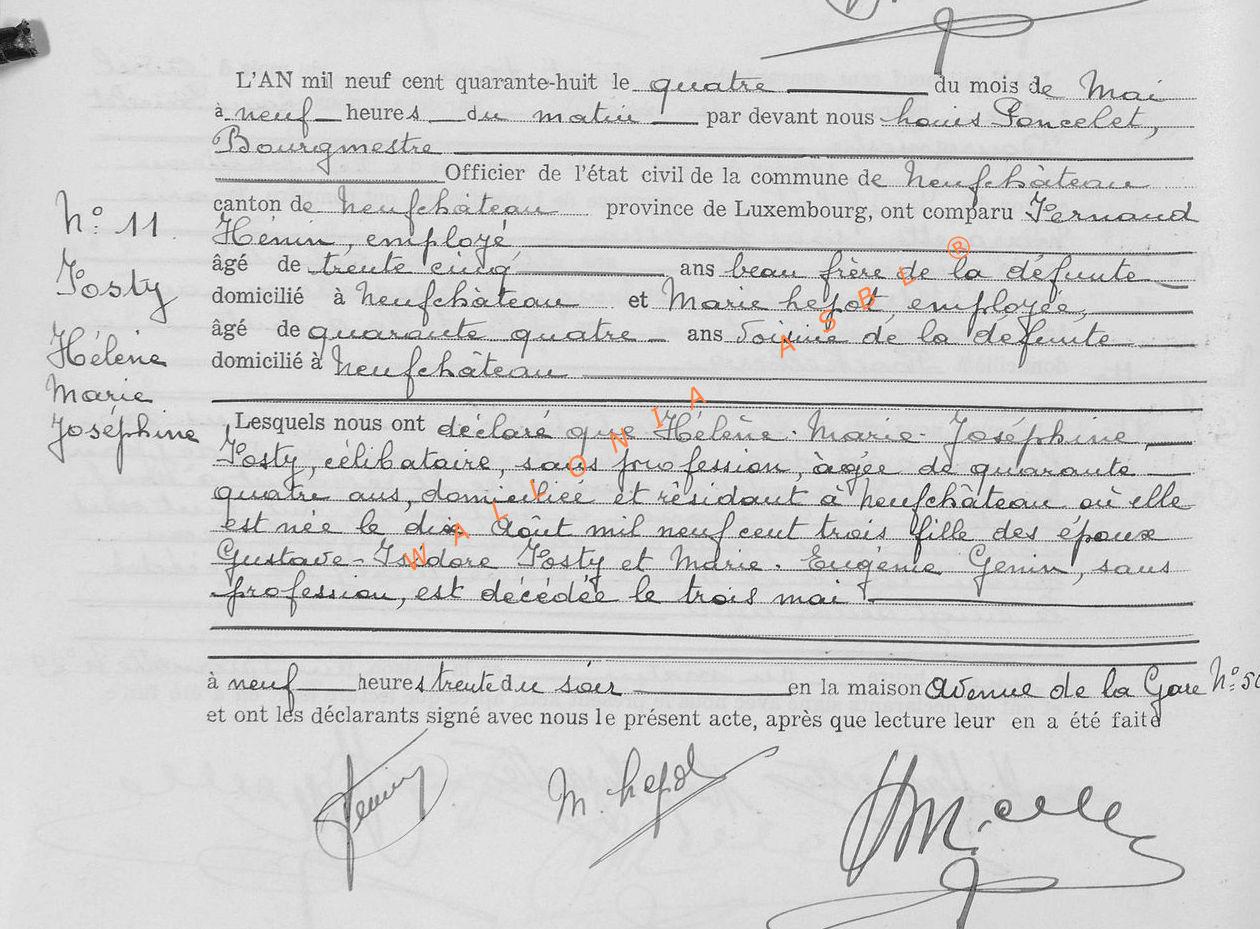 L'AN mil neuf cent quarante-huit le quatre du mois de Mai
à neuf heures du matin par devant nous Louis Poncelet,
Bourgmestre
Officier de l'état civil de la commune de Neufchâteau
canton de Neufchâteau province de Luxembourg, ont comparu Fernand
Hénin, employé
âgé de trente cinq ans beau frère de la défunte
domicilié à Neufchâteau et Marie Lepot, employée,
âgé de quarante quatre ans voisine de la défunte
domicilié à Neufchâteau
N° 11.
Posty
Hélène
Marie
Joséphine
Lesquels nous ont déclaré que Hélène-Marie-Joséphine,
Posty, célibataire, sans profession, âgée de quarante
quatre ans, domiciliée et résidant à Neufchâteau où elle
est née le dix Août mil neuf cent trois fille des époux
Gustave-Isidore Posty et Marie-Eugénie Genin, sans
profession, est décédée le trois mai
à neuf heures trente du soir en la maison Avenue de la Gare N°
et ont les déclarants signé avec nous le présent acte, après que lecture leur en a été faite
M. Lepot
WALLONIA ASBL ®